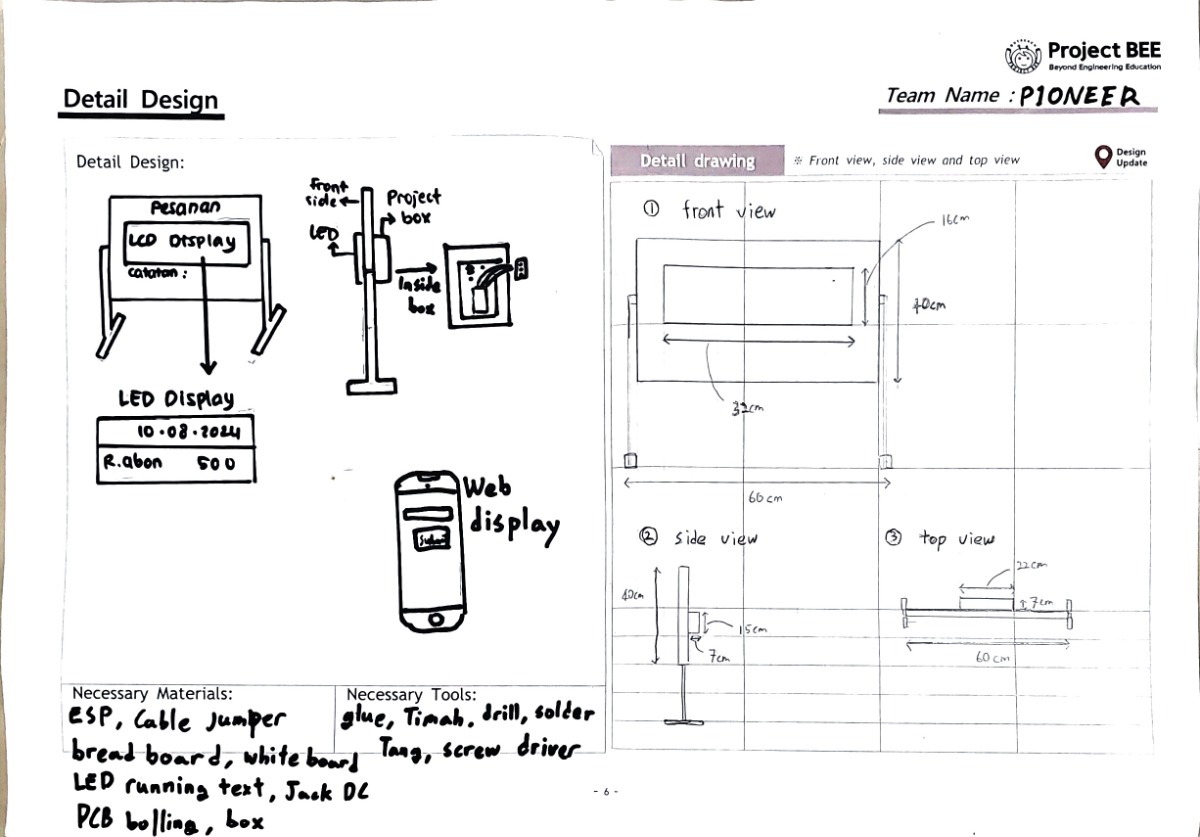 Project BEE
Beyond Engineering Education
Detail Design
Team Name : PIONEER
Detail Design:
Pesanan
LCD Display
Catatan :
front
side
Project
box
LED
Inside
box
LED Display
10.08.2024
R.abon 500
Web
display
Submit
Necessary Materials:
ESP, Cable Jumper
bread board, white board
LED running text, Jack DC
PCB bolling, box
Necessary Tools:
glue, Timah, drill, solder
Tang, screw driver
Detail drawing
※ Front view, side view and top view
Design
Update
① front view
16cm
40cm
32cm
60cm
② side view
40cm
15cm
7cm
③ top view
22cm
7cm
60cm
- 6 -